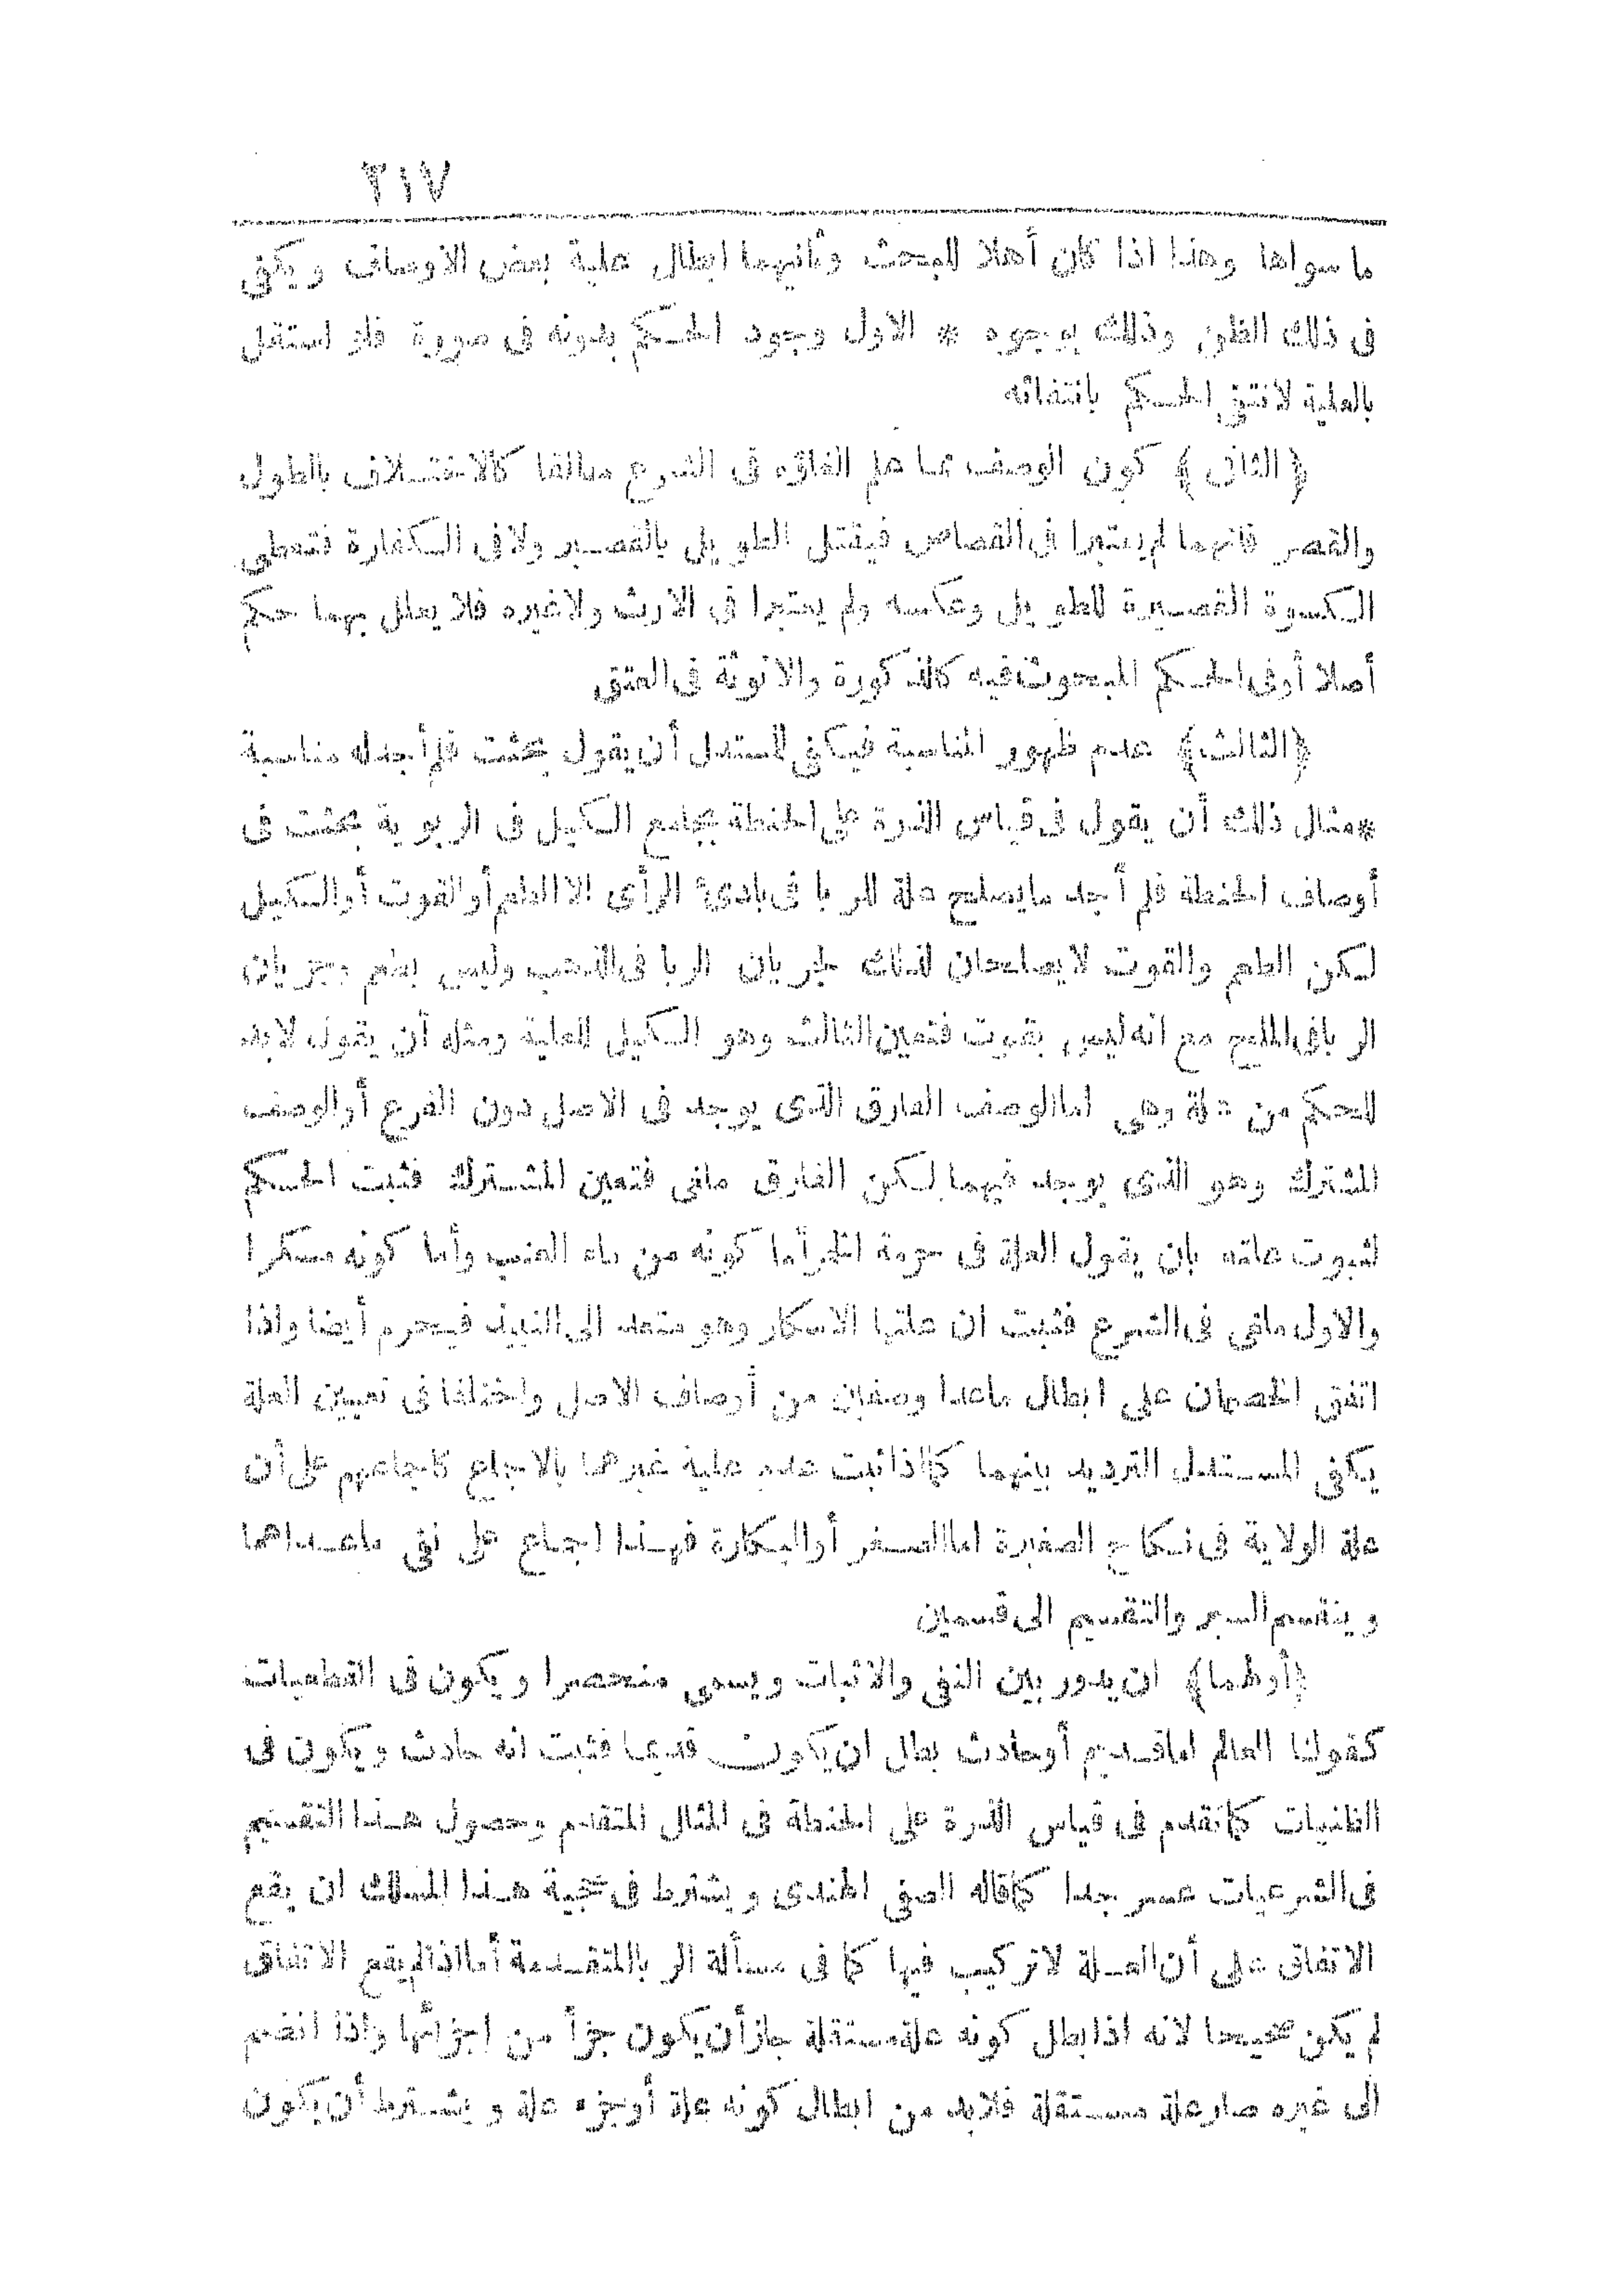 ٣١٧
ما سواها وهذا اذا كان أهلا للبحث وثانيهما ابطال علية بعض الاوصاف ويكفى
فى ذلك الظن وذلك بوجوه * الاول وجود الحكم بدونه فى صورة فلو استقل
بالعلية لانتفى الحكم بانتفائه
﴿الثانى﴾ كون الوصف مما علم الغاؤه فى الشرع مطلقا كالاختلاف بالطول
والقصر فانهما لم يعتبرا فى القصاص فيقتل الطويل بالقصير ولا فى الكفارة فتعطى
الكسوة القصيرة للطويل وعكسه ولم يعتبرا فى الارث ولا غيره فلا يعلل بهما حكم
أصلا أو فى الحكم المبحوث فيه كالذكورة والانوثة فى العتق
﴿الثالث﴾ عدم ظهور المناسبة فيكفى للمستدل أن يقول بحثت فلم أجد له مناسبة
*مثال ذلك أن يقول فى قياس الذرة على الحنطة بجامع الكيل فى الربوية بحثت فى
أوصاف الحنطة فلم أجد ما يصلح علة للربا فى بادئ الرأى الا الطعم أو القوت أو الكيل
لكن الطعم والقوت لا يصلحان لذلك لجريان الربا فى الذهب وليس بطعم وجريان
الربا فى الملح مع انه ليس بقوت فتعين الثالث وهو الكيل للعلية ومثله أن يقول لا بد
للحكم من علة وهى اما الوصف الفارق الذى يوجد فى الاصل دون الفرع أو الوصف
المشترك وهو الذى يوجد فيهما لكن الفارق ملغى فتعين المشترك فثبت الحكم
لثبوت علته بان يقول العلة فى حرمة الخمر أما كونه من ماء العنب وأما كونه مسكرا
والاول ملغى فى الشرع فثبت ان علتها الاسكار وهو متعد الى النبيذ فيحرم أيضا واذا
اتفق الخصمان على ابطال ما عدا وصفين من أوصاف الاصل واختلفا فى تعيين العلة
يكفى المستدل الترديد بينهما كما اذا ثبت عدم علية غيرها بالاجماع كاجماعهم على أن
علة الولاية فى نكاح الصغيرة اما الصغر أو البكارة فهذا اجماع على نفى ما عداها
وينقسم السبر والتقسيم الى قسمين
﴿أولهما﴾ ان يدور بين النفى والاثبات ويسمى منحصرا ويكون فى القطعيات
كقولنا العالم اما قديم أو حادث بطل ان يكون قديما فثبت انه حادث ويكون فى
الظنيات كما تقدم فى قياس الذرة على الحنطة فى المثال المتقدم وحصول هذا التقسيم
فى الشرعيات عسر جدا كما قاله الصفى الهندى ويشترط فى صحة هذا المسلك ان يقع
الاتفاق على أن العلة لا تركيب فيها كما فى مسألة الربا المتقدمة أما اذا لم يقع الاتفاق
لم يكن صحيحا لانه اذا بطل كونه علة مستقلة جاز أن يكون جزأ من اجزائها واذا انضم
الى غيره صار علة مستقلة فلا بد من ابطال كونه علة أو جزء علة ويشترط أن يكون